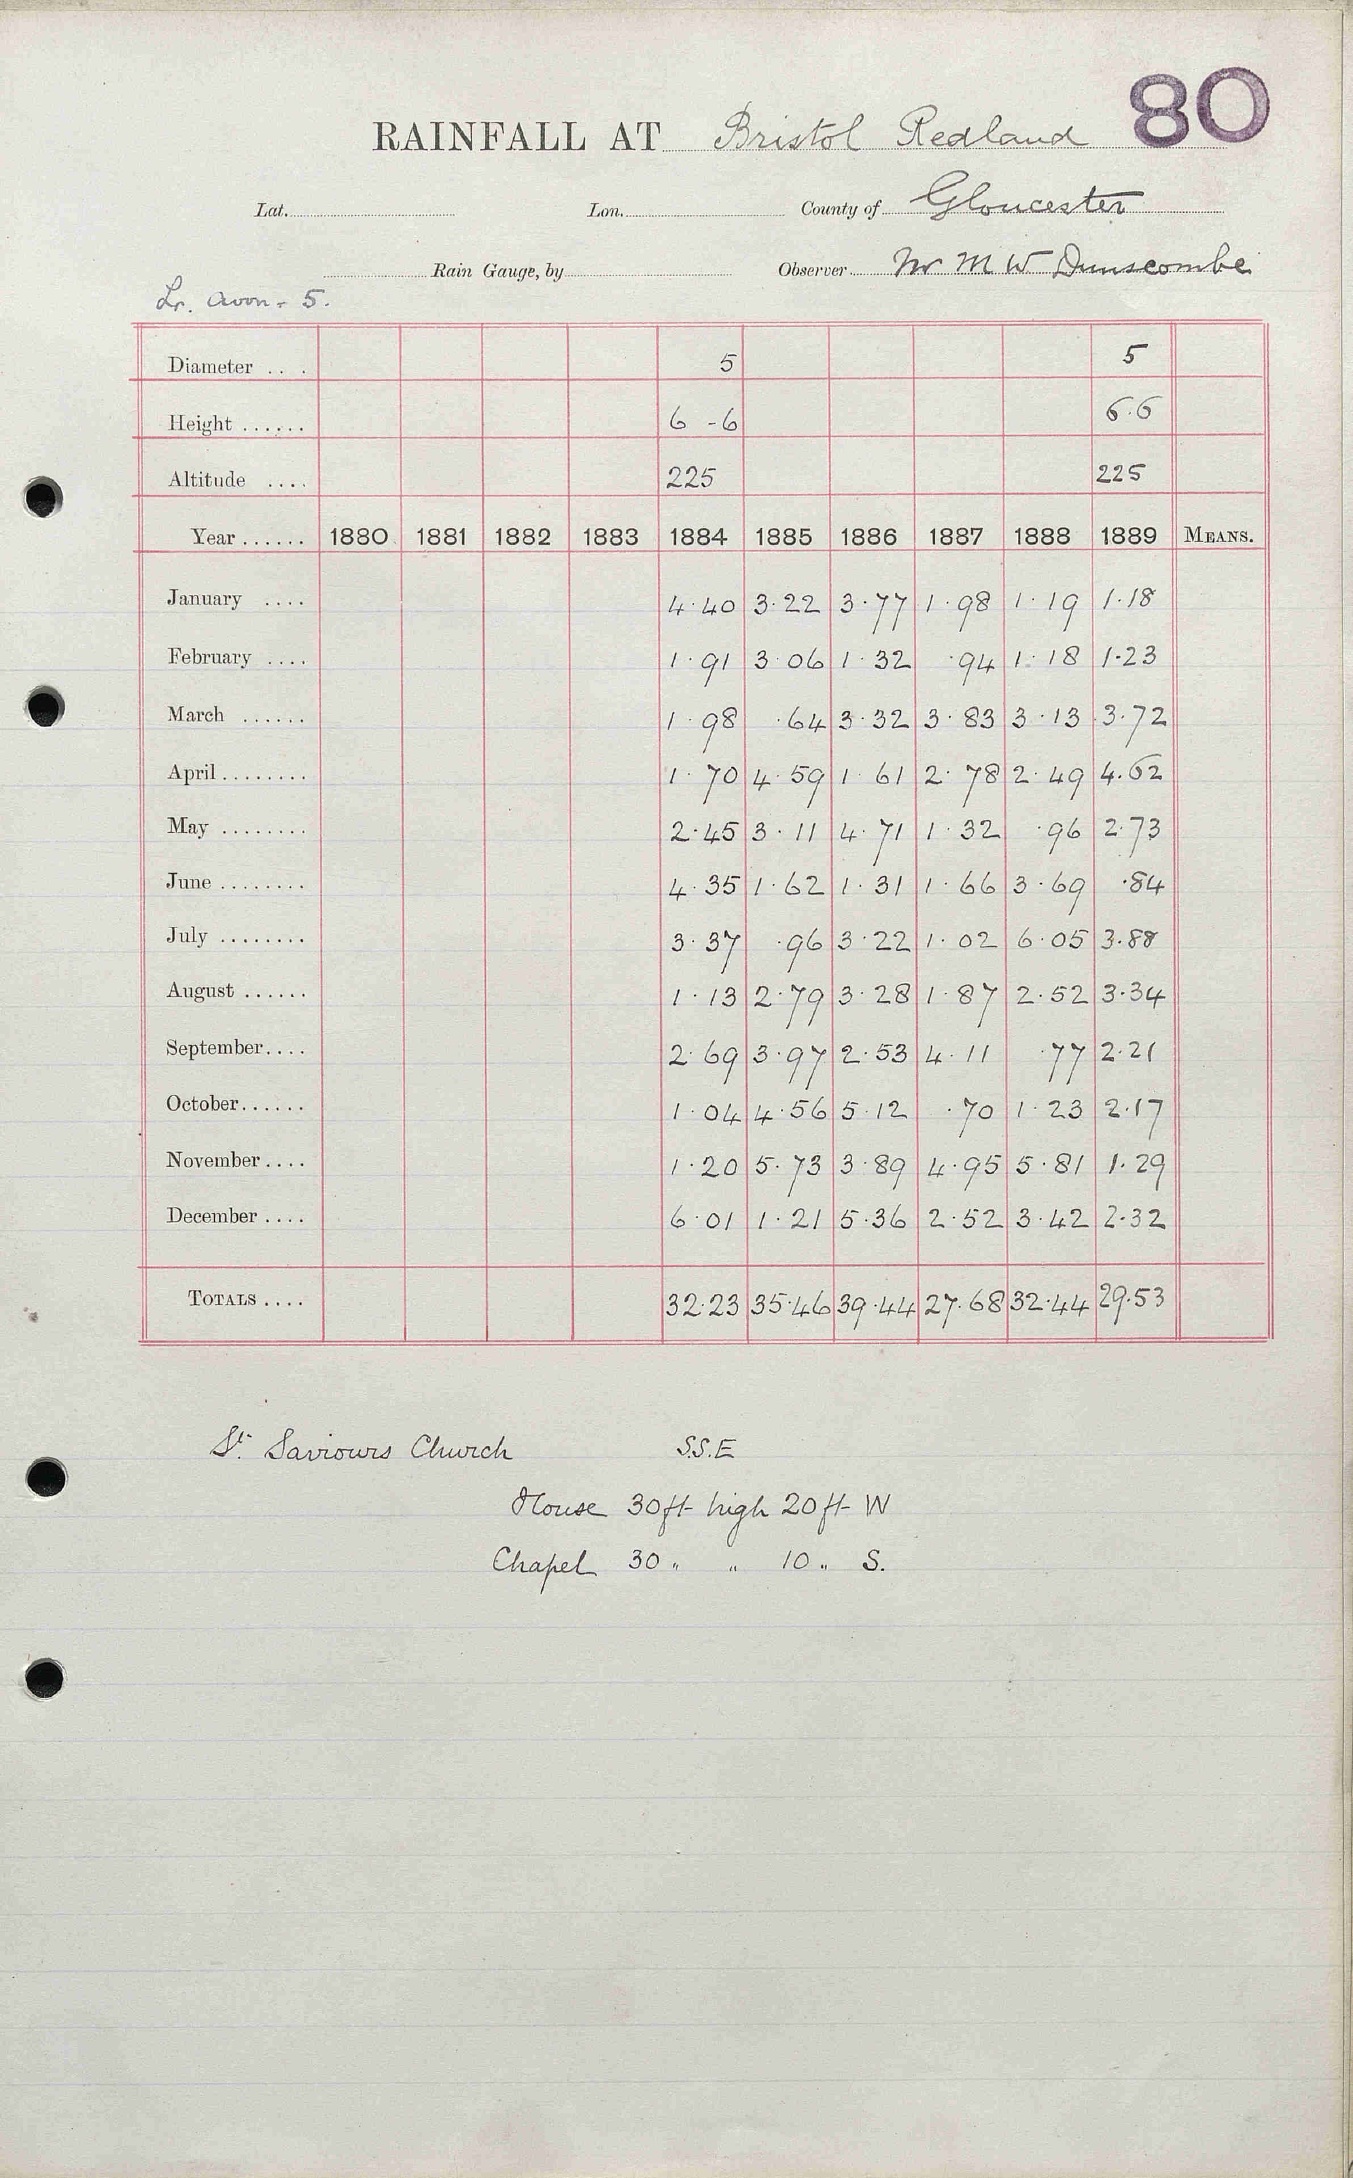 80
RAINFALL AT Bristol Redland
Lat. Lon. County of Gloucester
Rain Gauge, by Observer Mr M W Dunscombe
Lr. Avon - 5.
Diameter . . . 5 5
Height ...... 6 - 6 6.6
Altitude .... 225 225
Year ...... 1880 1881 1882 1883 1884 1885 1886 1887 1888 1889 MEANS.
January .... 4.40 3.22 3.77 1.98 1.19 1.18
February .... 1.91 3.06 1.32 .94 1.18 1.23
March ...... 1.98 .64 3.32 3.83 3.13 3.72
April ........ 1.70 4.59 1.61 2.78 2.49 4.62
May ........ 2.45 3.11 4.71 1.32 .96 2.73
June ........ 4.35 1.62 1.31 1.66 3.69 .84
July ........ 3.37 .96 3.22 1.02 6.05 3.88
August ...... 1.13 2.79 3.28 1.87 2.52 3.34
September.... 2.69 3.97 2.53 4.11 .77 2.21
October...... 1.04 4.56 5.12 .70 1.23 2.17
November .... 1.20 5.73 3.89 4.95 5.81 1.29
December .... 6.01 1.21 5.36 2.52 3.42 2.32
TOTALS .... 32.23 35.46 39.44 27.68 32.44 29.53
St. Saviours Church S.S.E
House 30 ft high 20 ft W
Chapel 30 " " 10 " S.